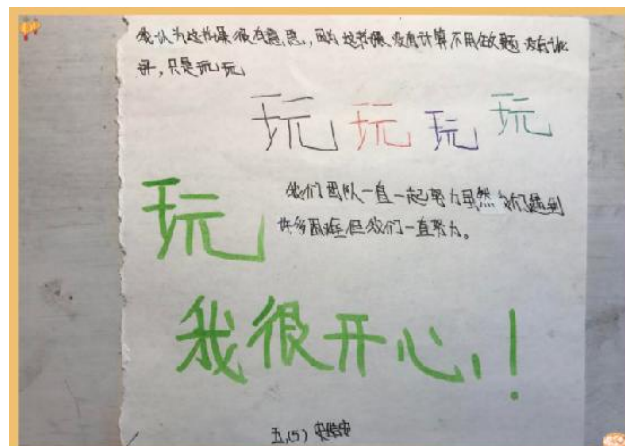 我认为这节课很有意思,因为这节课没有计算不用做题没有批
评,只是玩玩
玩玩玩玩
玩
我们团队一直一起努力虽然我们遇到
许多困难但我们一直努力。
我很开心!
五(5)